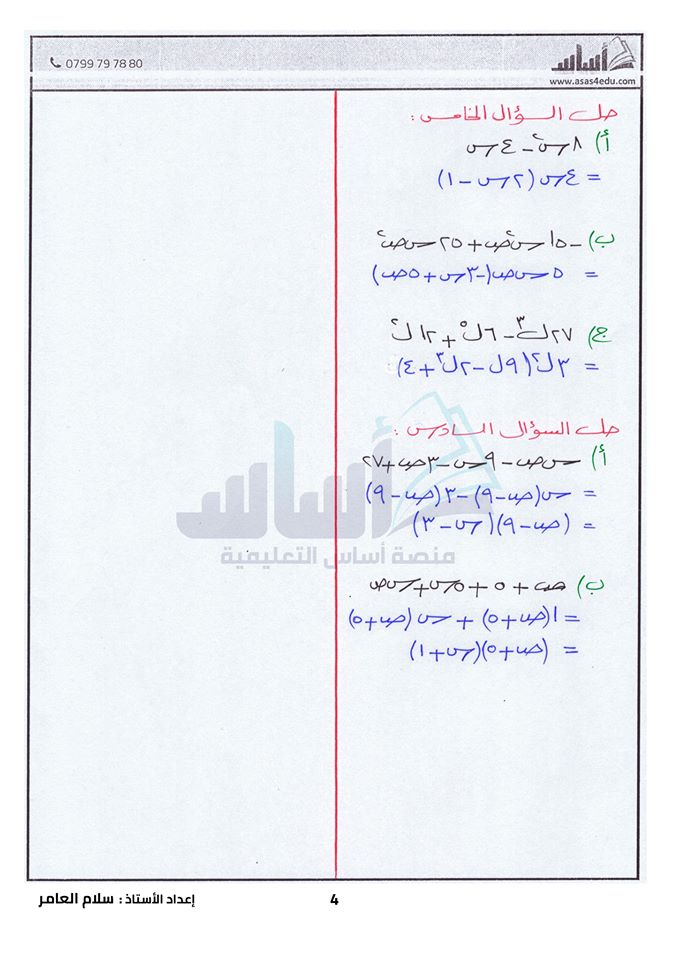 أساس
www.asas4edu.com
0799 79 78 80
حل السؤال الخامس :
أ) ٨س٢ - ٤س
= ٤س (٢س - ١)
ب) -١٥س٢ص + ٢٥س ص٢
= ٥س ص(-٣س + ٥ص)
ج) ٢٧ل٣ - ٦ل٥ + ١٢ل٢
= ٣ل٢(٩ل - ٢ل٣ + ٤)
حل السؤال السادس :
أ) س ص - ٩س - ٣ص + ٢٧
= س(ص - ٩) - ٣(ص - ٩)
= (ص - ٩)(س - ٣)
ب) ص + ٥ + ٥س + س ص
= ١(ص + ٥) + س(ص + ٥)
= (ص + ٥)(س + ١)
أساس
منصة أساس التعليمية
إعداد الأستاذ : سلام العامر
4